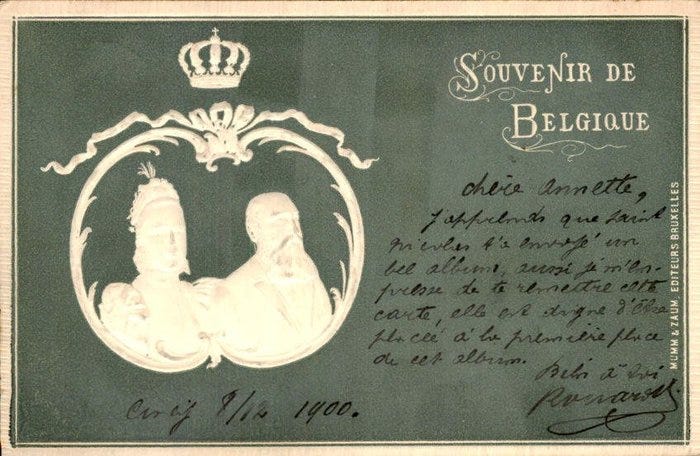 SOUVENIR DE
BELGIQUE
chère Annette,
J'apprends que Saint
Nicolas t'a envoyé un
bel album, aussi je m'em-
presse de te remettre cette
carte, elle est digne d'être
placée à la première place
de cet album.
à toi
8/12 1900.
MUMM & ZAUM, EDITEURS BRUXELLES